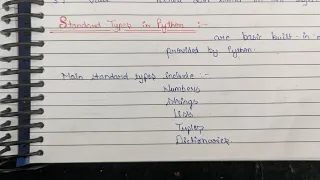 Standard Types in Python :-
are basic built-in
provided by Python.
Main standard types include :-
Numbers
Strings
Lists
Tuples
Dictionaries